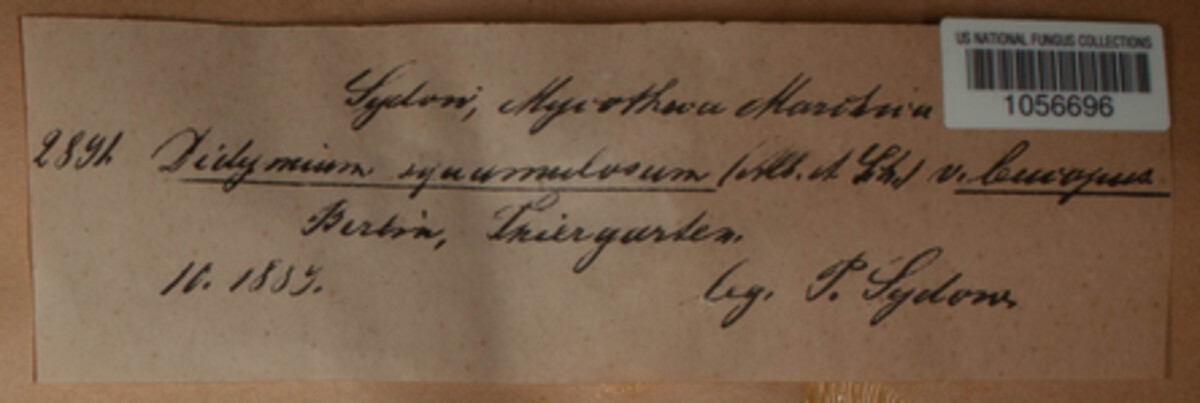 US NATIONAL FUNGUS COLLECTIONS
1056696
Sydow, Mycotheca Marchica
Didymium squamulosum (Alb. et Schw.) v. leucopus
Berlin, Thiergarten.
leg. P. Sydow.